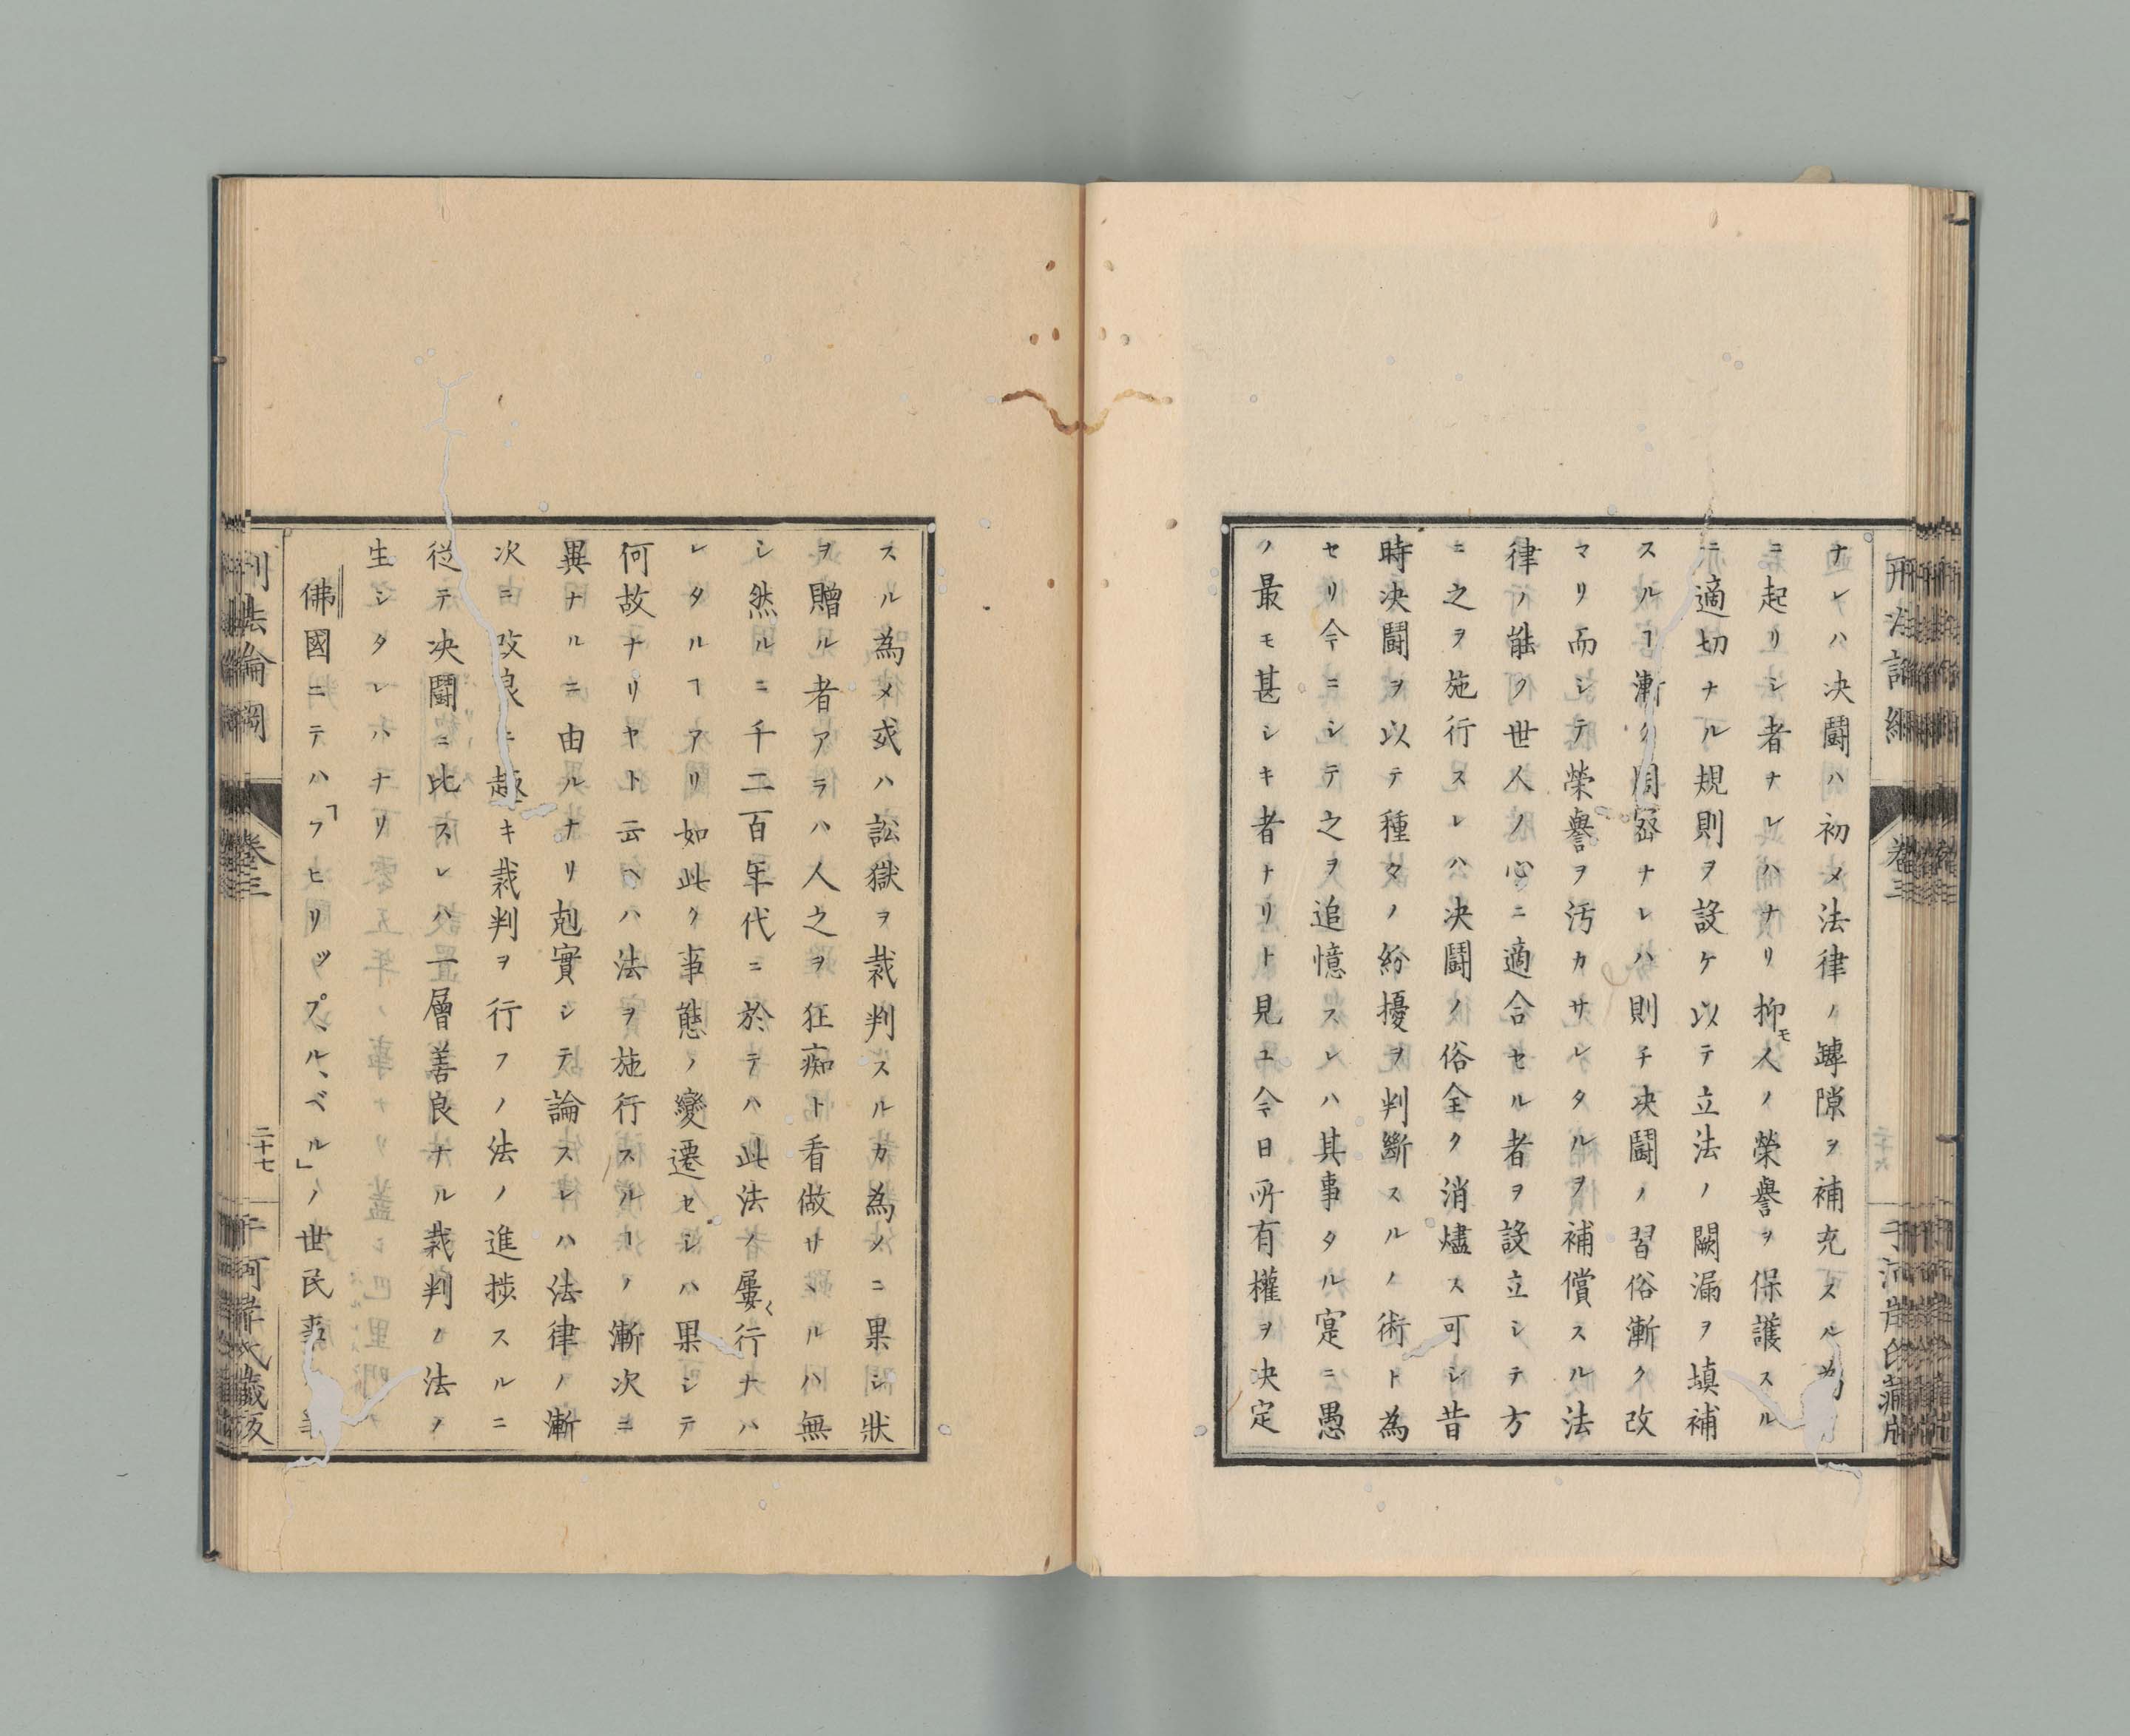 ナレハ决闘ハ初メ法律ノ罅隙ヲ補充スル為
ニ起リシ者ナレハナリ抑モ人ノ榮譽ヲ保護スル
ニ適切ナル規則ヲ設ケ以テ立法ノ闕漏ヲ塡補
スルヿ漸ク周密ナレハ則チ决闘ノ習俗漸ク改
マリ而シテ榮譽ヲ汚カサレタルヲ補償スル法
律ノ能ク世人ノ心ニ適合セル者ヲ設立シテ方
ニ之ヲ施行スレハ公决闘ノ俗全ク消燼ス可シ昔
時决闘ヲ以テ種々ノ紛擾ヲ判斷スルノ術ト為
セリ今ニシテ之ヲ追憶スレハ其事タル寔ニ愚
ノ最モ甚シキ者ナリト見ユ今日所有權ヲ决定
卷三
スル為メ或ハ訟獄ヲ裁判スルカ為メニ果シ狀
ヲ贈ル者アラハ人之ヲ狂痴ト看做サヽルハ無
シ然ルニ千二百年代ニ於テハ此法ノ屢〱行ナハ
レタルヿアリ如此ク事態ノ變遷セシハ果シテ
何故ナリヤト云ヘハ法ヲ施行スルヿノ漸次ニ
異ナルニ由ルナリ尅實シテ論スレハ法律ノ漸
次ニ改良ニ趣キ裁判ヲ行フノ法ノ進捗スルニ
従テ决闘ニ比スレハ一層善良ナル裁判ノ法ヲ
生シタレハナリ
佛國ニテハ「フヒリップ、ル、ベル」ノ世民事
刑法論綱
卷三
二十七
何禮之氏藏版